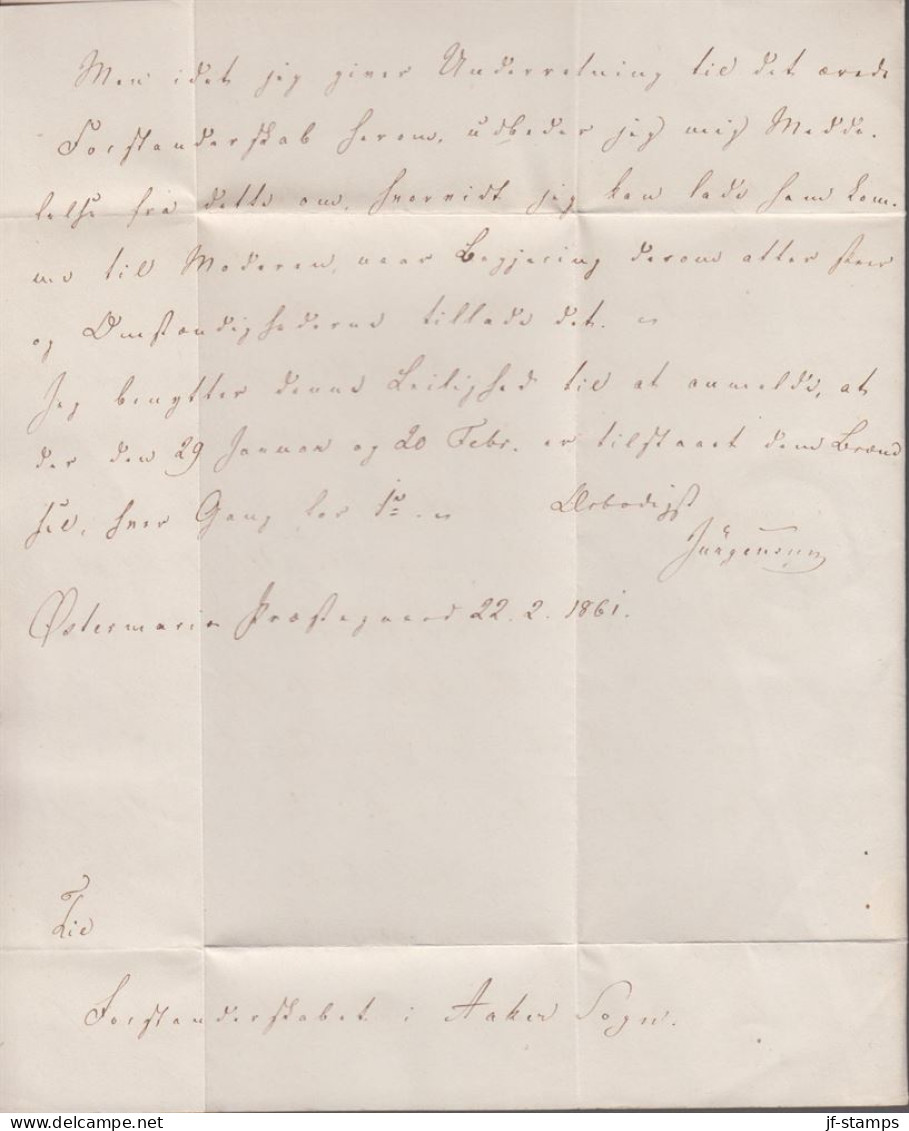 Men idet jeg giver Underretning til det ærede
Forstanderskab herom, udbeder jeg mig Medde-
lelse fra dette om, hvorvidt jeg kan lade ham kom-
me til Moderen, naar Begjæring derom atter skeer
og Omstændighederne tillade det.
Jeg benytter denne Leilighed til at anmelde, at
der den 29 Januar og 20 Febr. er tilstaaet dem Brænd
sel, hver Gang for 1
Ærbødigst
Jürgensen
Østermarie Præstegaard 22. 2. 1861.
Til
Forstanderskabet i Aaker Sogn.
jf-stamps